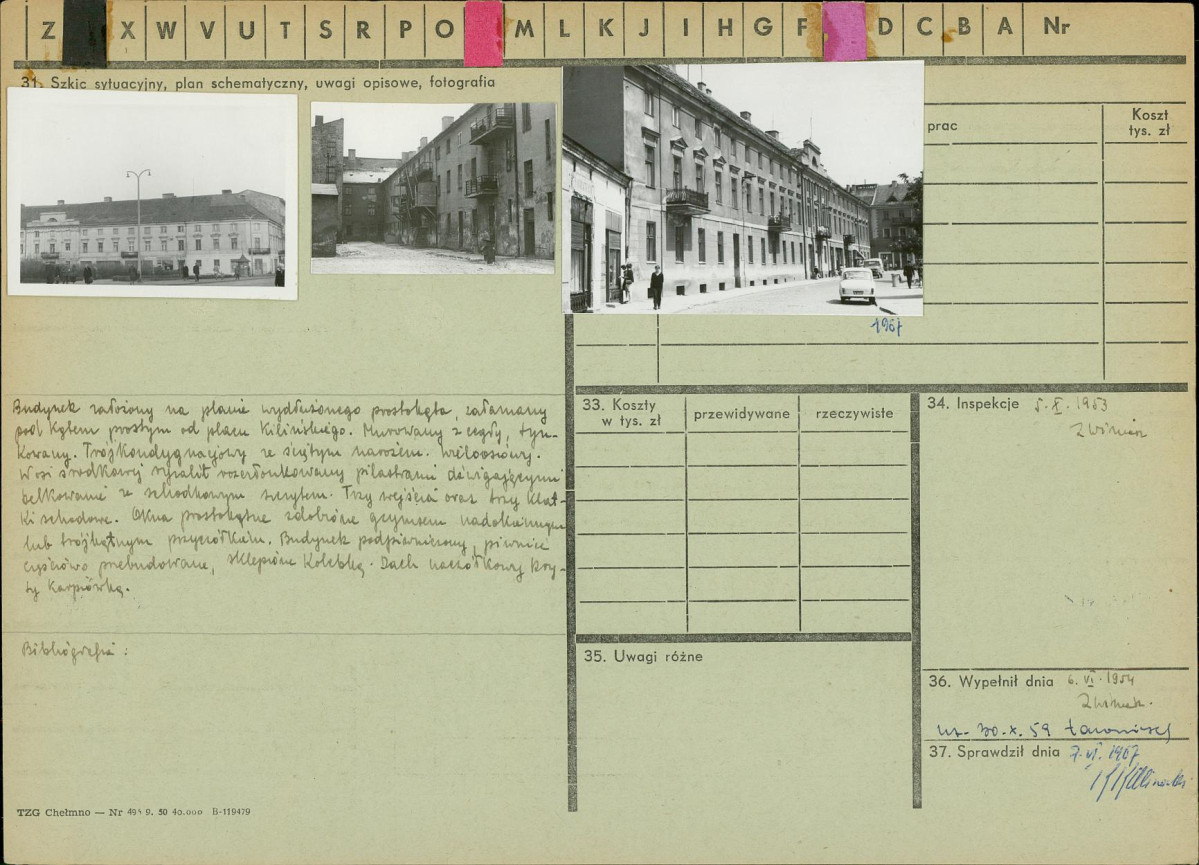 Z X W V U T S R P O M L K J I H G F D C B A Nr
31. Szkic sytuacyjny, plan schematyczny, uwagi opisowe, fotografia
prac
Koszt
tys. zł
1967
Budynek założony na planie wydłużonego prostokąta, załamany
pod kątem prostym od placu Kilińskiego. Murowany z cegły, tyn-
kowany. Trójkondygnacyjowy ze ściętym narożem. Wieloosiowy.
W osi środkowej ryzalit rozczłonkowany pilastrami dźwigającymi
belkowanie ze schodkowym szczytem. Trzy wejścia oraz trzy klat-
ki schodowe. Okna prostokątne zdobione gzymsem nadokiennym
lub trójkątnym przyczółkiem. Budynek podpiwniczony, piwnice
częściowo przebudowane, sklepione kolebką. Dach naczółkowy kry-
ty karpiówką.
Bibliografia :
33. Koszty
w tys. zł
przewidywane
rzeczywiste
34. Inspekcje 5.X.1953
35. Uwagi różne
36. Wypełnił dnia 6.VI.1954
30.X.59
37. Sprawdził dnia 7.VI.1967
TZG Chełmno — Nr 495 9. 50 40.000 B-119479